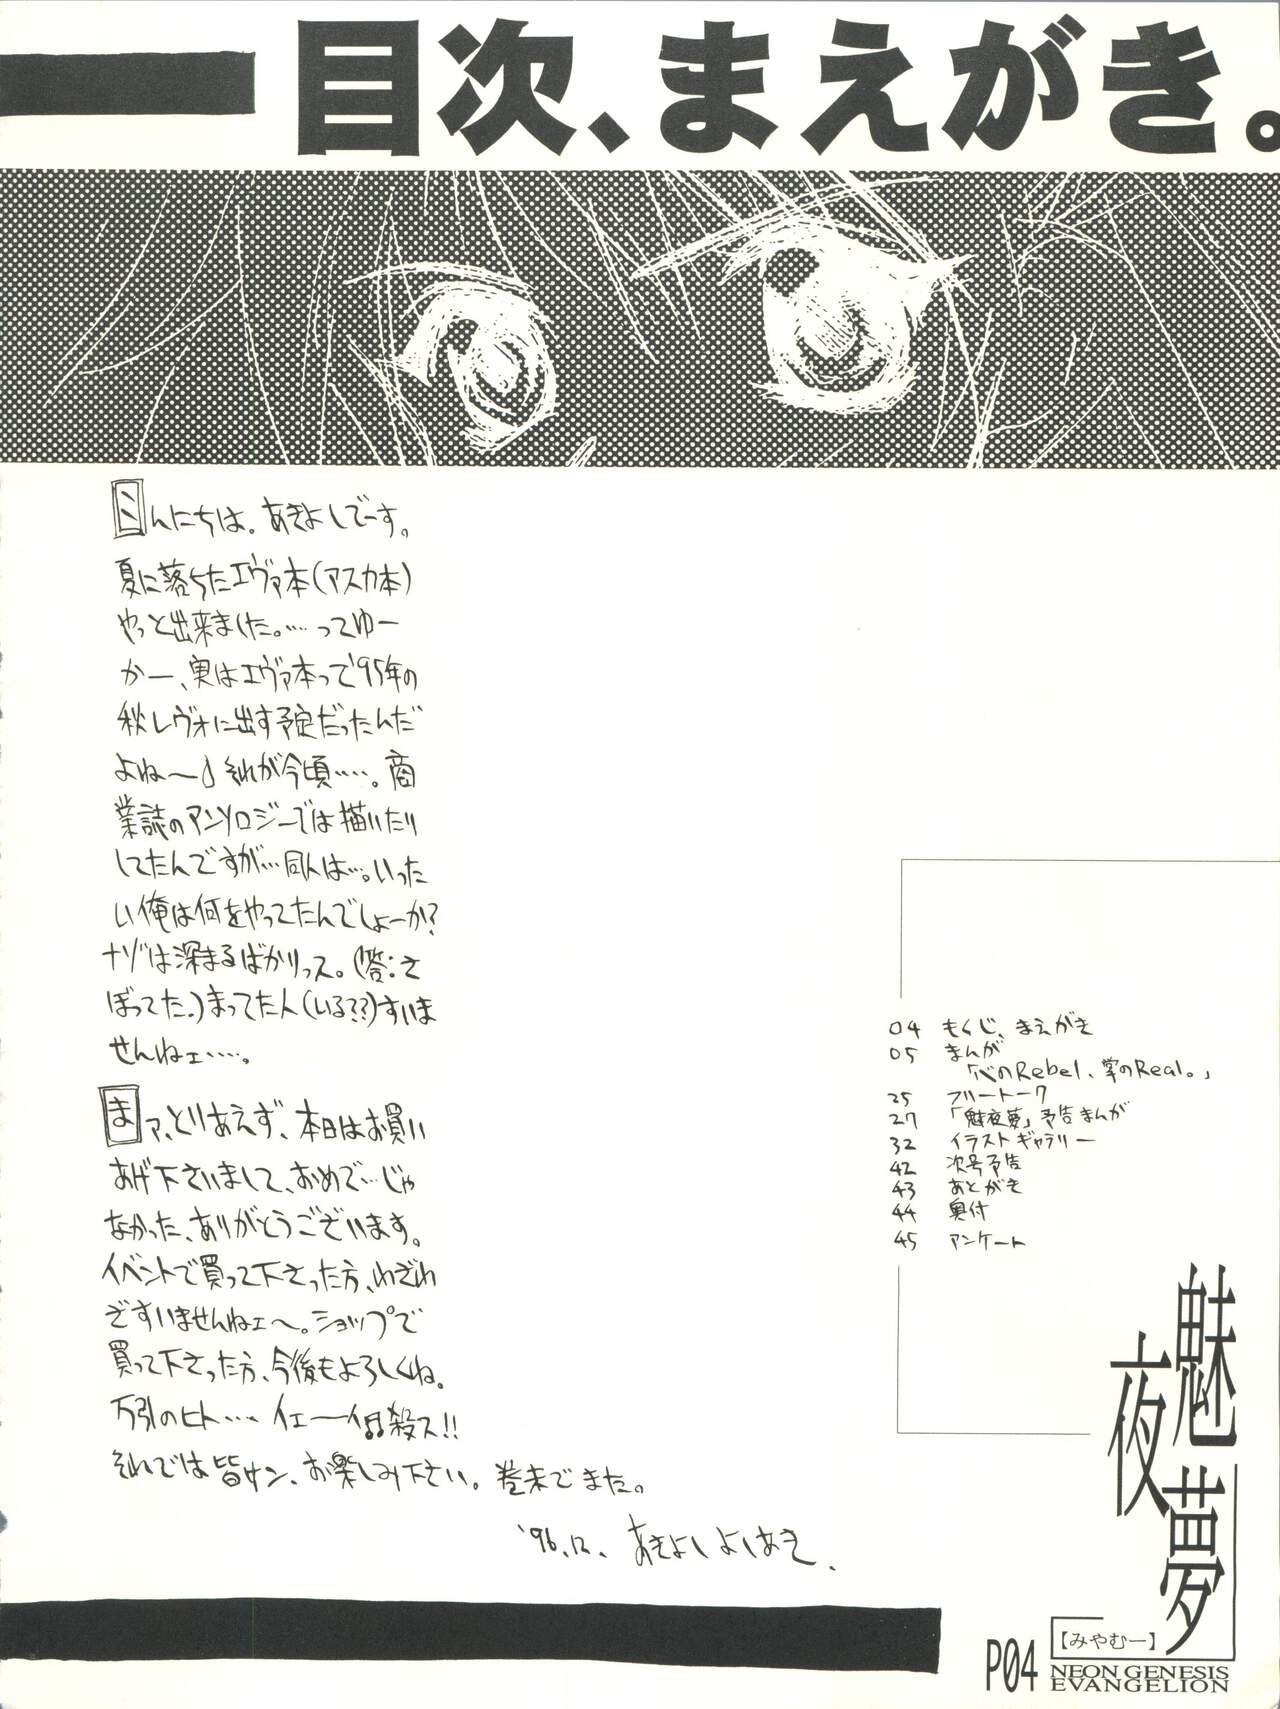 目次、まえがき。
こんにちは。あきよしでーす。
夏に落ちたエヴァ本(アスカ本)
やっと出来ました。…ってゆー
かー、実はエヴァ本って'95年の
秋レヴォに出す予定だったんだ
よね〜♪それが今頃……。商
業誌のアンソロジーでは描いたり
してたんですが…同人は…。いった
い俺は何をやってたんでしょーか?
ナゾは深まるばかりっス。(答:さ
ぼってた。)まってた人(いる??)すいま
せんねェ……。
まァ、とりあえず、本日はお買い
あげ下さいまして、おめで…じゃ
なかった、ありがとうございます。
イベントで買って下さった方、わざわ
ざすいませんねェ〜。ショップで
買って下さった方、今後もよろしくね。
万引のヒト…
それでは皆サン、お楽しみ下さい。巻末でまた。
'96.12. あきよしよしあき.
04 もくじ、まえがき
05 まんが
「心のRebel、掌のReal。」
25 フリートーク
27 「魅夜夢」予告まんが
32 イラストギャラリー
42 次号予告
43 あとがき
44 奥付
45 アンケート
魅夜夢
【みやむー】
NEON GENESIS
EVANGELION
P04